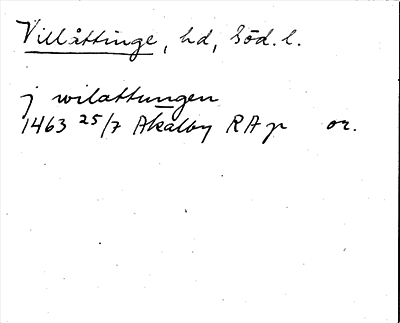 Villåttinge, hd, Söd. l.
j wilattungen
1463 25/7 Åkälby RA p or.